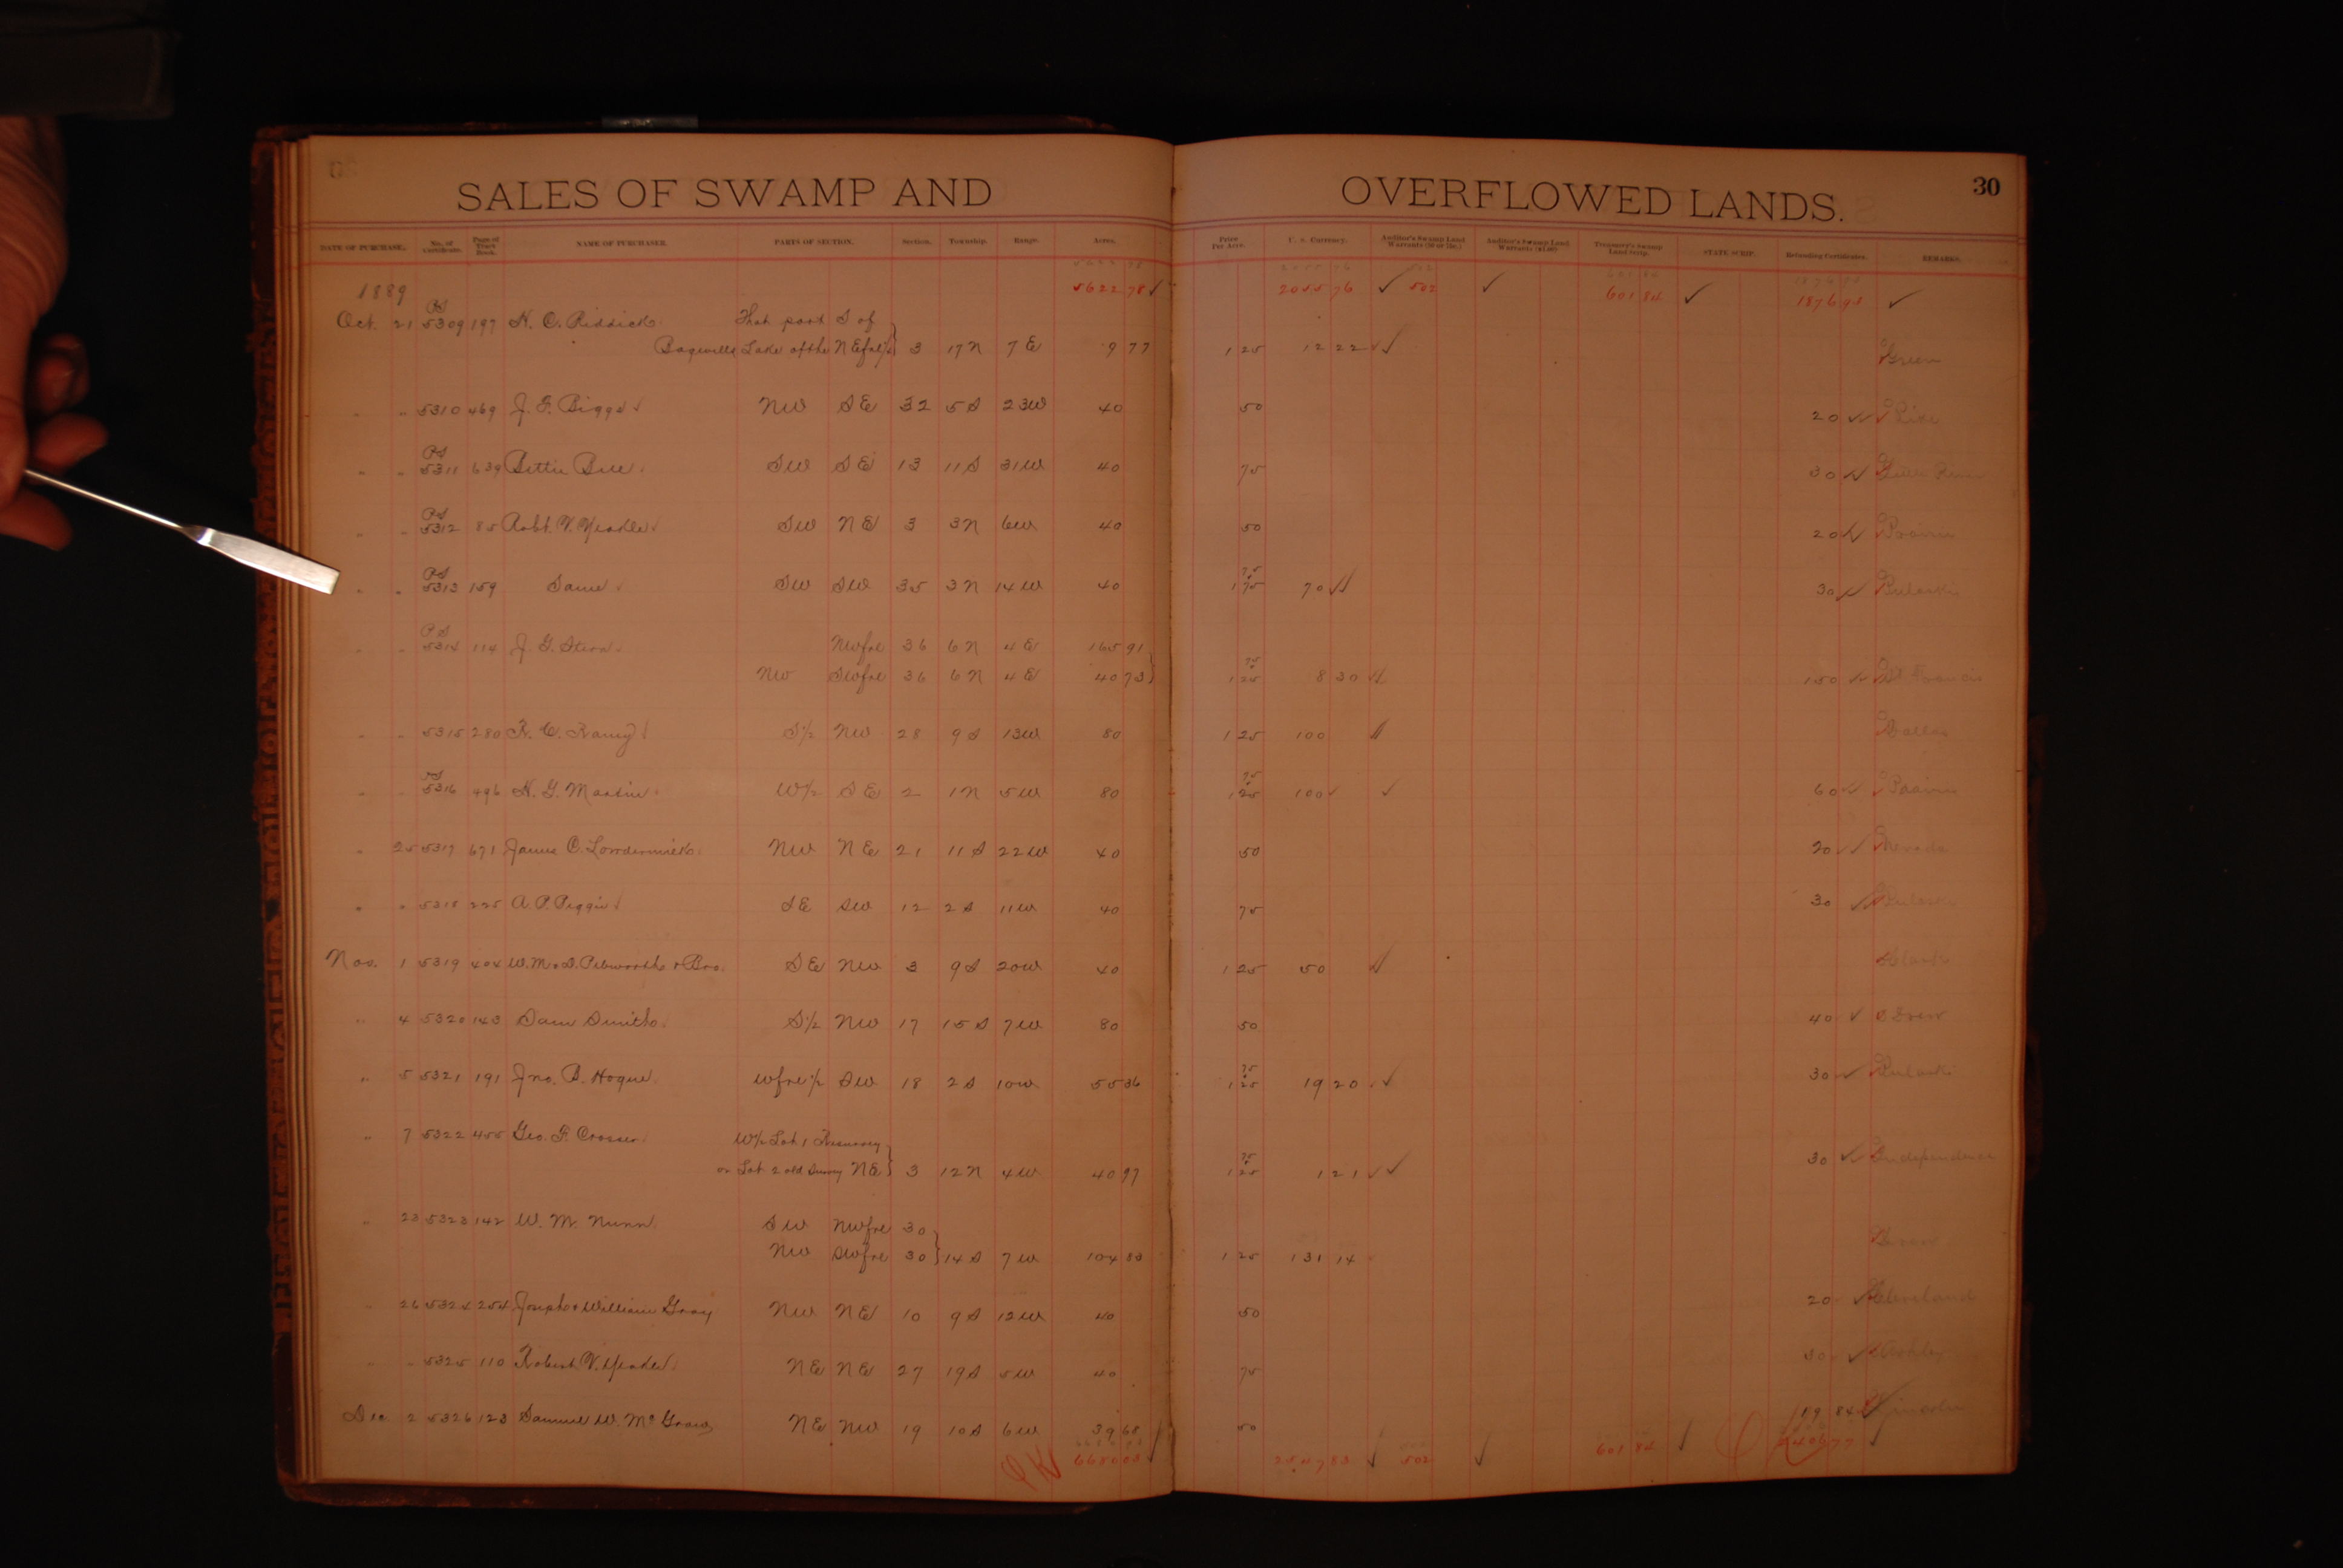 SALES OF SWAMP AND OVERFLOWED LANDS. 30
DATE OF PURCHASE. No. of Certificate. Page of Tract Book. NAME OF PURCHASER. PARTS OF SECTION. Section. Township. Range. Acres. Price Per Acre. U. S. Currency. Auditor's Swamp Land Warrants (50 or 75c.) Auditor's Swamp Land Warrants ($1.00) Treasurer's Swamp Land Scrip. STATE SCRIP. Refunding Certificates. REMARKS.
1889 5622 78 ✓ 2055 76 ✓ 502 ✓ 601 84 ✓ 1876 93 ✓
Oct. 21 5309 197 H. C. Riddick That part S of
Lake of the NE frl 1/4 } 3 17N 7E 9 77 1 25 12 22 ✓✓ Green
" " 5310 469 J. F. Biggs ✓ NW SE 32 5S 23W 40 50 20 ✓✓ Pike
PS
" " 5311 639 Bettie Bell SW SE 13 11S 31W 40 75 30 ✓✓ Little River
PS
" " 5312 85 Robt. V. Yeakle ✓ SW NE 3 3N 6W 40 50 20 ✓✓ Prairie
PS 75
" " 5313 159 Same ✓ SW SW 35 3N 14W 40 1 75 70 ✓✓ 30 ✓✓ Pulaski
PS
" " 5314 114 J. G. Stern ✓ NW frl 36 6N 4E 165 91
NW SW frl 36 6N 4E 40 73 } 75 1 25 8 30 ✓✓ 150 ✓✓ St Francis
" " 5315 280 R. C. Ramy ✓ S 1/2 NW 28 9S 13W 80 1 25 100 ✓✓ Dallas
PS 75
" " 5316 496 H. G. Martin W 1/2 SE 2 1N 5W 80 1 25 100 ✓ ✓ 60 ✓✓ Prairie
" 25 5317 671 James C. Lowdermilk NW NE 21 11S 22W 40 50 20 ✓✓ Nevada
" " 5318 225 A. P. Piggie ✓ SE SW 12 2S 11W 40 75 30 ✓✓ Pulaski
Nov. 1 5319 404 W. M. & D. & Bro. SE NW 3 9S 20W 40 1 25 50 ✓✓ Clark
" 4 5320 143 Sam Smith S 1/2 NW 17 15S 7W 80 50 40 ✓ Drew
" 5 5321 191 Jno. B. Hogue W frl 1/2 SW 18 2S 10W 55 36 75 1 25 19 20 ✓ 30 ✓ Pulaski
" 7 5322 455 Geo. F. Crosser W 1/2 Lot 1 Resurvey
or Lot 2 old Survey NE } 3 12N 4W 40 97 75 1 25 1 21 ✓✓ 30 ✓✓ Independence
" 23 5323 142 W. M. Nunn SW NW frl 30
NW SW frl 30 } 14S 7W 104 83 1 25 131 14 Drew
" 26 5324 254 Joseph & William Gray NW NE 10 9S 12W 40 50 20 ✓ Cleveland
" " 5325 110 Robert V. Yeakle NE NE 27 19S 5W 40 75 30 ✓ Ashley
Dec 2 5326 123 Samuel W. McGraw NE NW 19 10S 6W 39 68 50 19 84 ✓ Lincoln
OK 6680 03 ✓ 2547 83 ✓ 502 ✓ 601 84 ✓ 2406 77 ✓